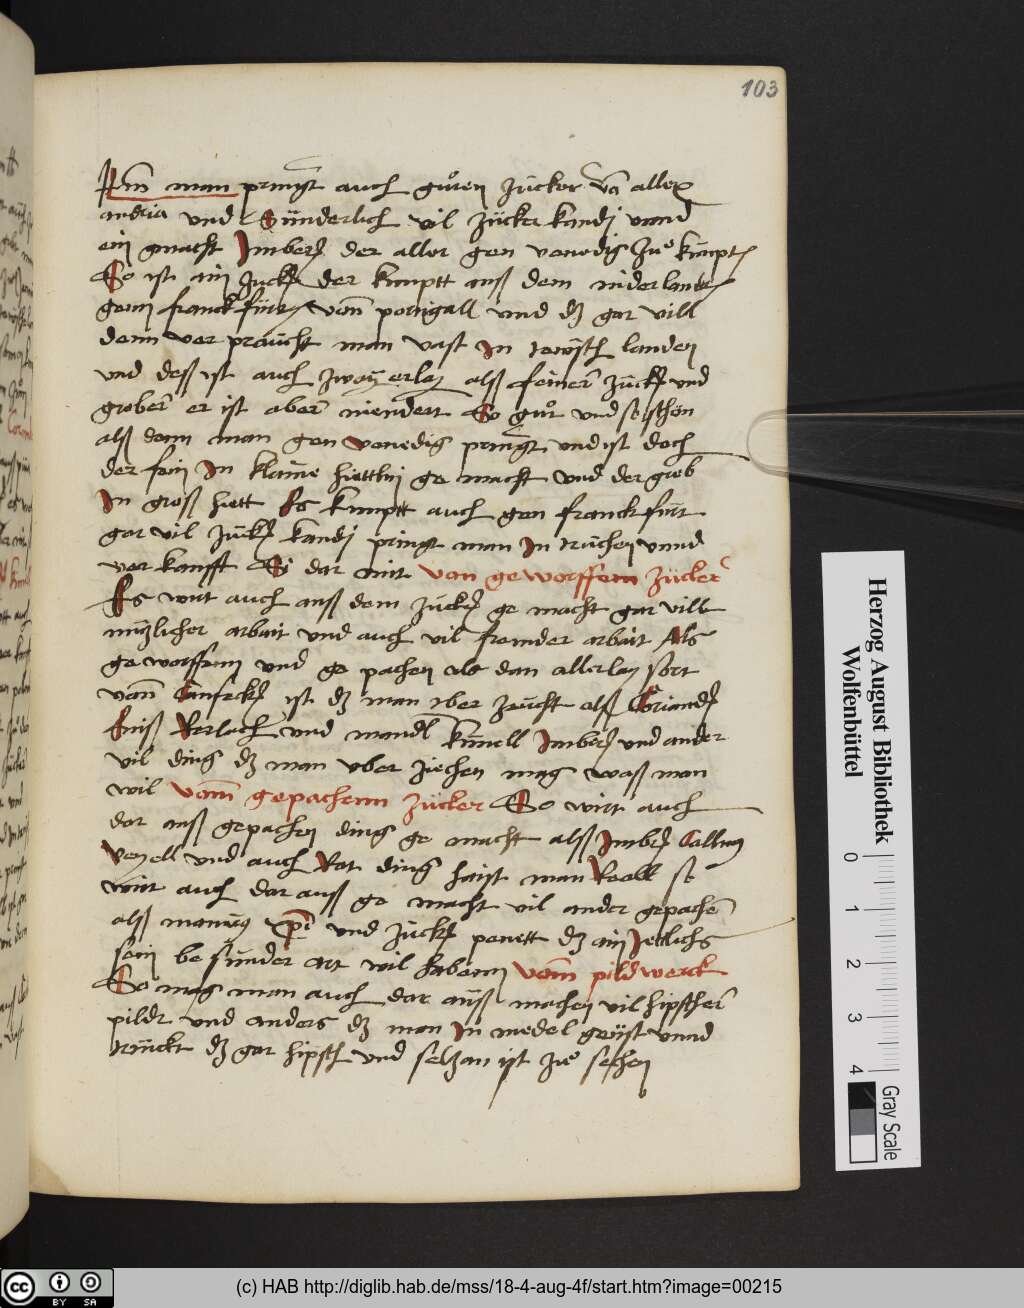 103
Itm man pringt auch guͦten zucker vō allex
andria und Sünderlich vil zücker kandj vnnd
ein gmacht Jmberʒ der aller gen venedig zuͦ kumpt
So ist ain zuckʒ der kumptt auß dem niderlandt
genn franckfürt vonn portigall vnd dʒ gar vill
denn ver praücht man vast in tewtsch landen
vnd deß ist auch zwayerlay alß feiner zuckʒ und
grober er ist aber niendert So guͦt und se schon
alß denn man gen venedig pringt und ist doch
der fein In klaine hiettlin ge macht vnd der greb
In groß hiett Es kumptt auch gen franckfürt
gar vil zuckʒ kandj pringt man In truchen vnnd
ver kaufft Si dar mit von geworffem zücker
Es wirt auch auß dem zuckʒ ge macht gar vill
nutzlicher arbait und auch vil fremder arbait Als
ge worffenn und ge pachen als dan allerlay sort
vonn Canfeckʒ ist dʒ man vber zeucht alß Coriandʒ
Eniß Kerlach und mandl kümell Jmberʒ und ander
vil ding dʒ man vber ziechen mag waß man
wil vom gepachenn zücker So wirt auch
dar auß gepachen ding ge macht alß Jmbʒ Callmy
venell und auch Rot ding haist man Roell se
wirt auch dar auß ge macht vil ander gepachē
alß manuß xpī und zuckʒ penett dʒ ain Jetlichs
sein be sunder art wil habenn vom pildwerck
So mag man auch dar auß machen vil hipscher
pildr und anders dʒ man In medel geüst vnnd
trückt dʒ gar hipsch und selzan ist zuͦ sechen
Herzog August Bibliothek
Wolfenbüttel
0 1 2 3 4
Gray Scale
cc BY SA
(c) HAB http://diglib.hab.de/mss/18-4-aug-4f/start.htm?image=00215